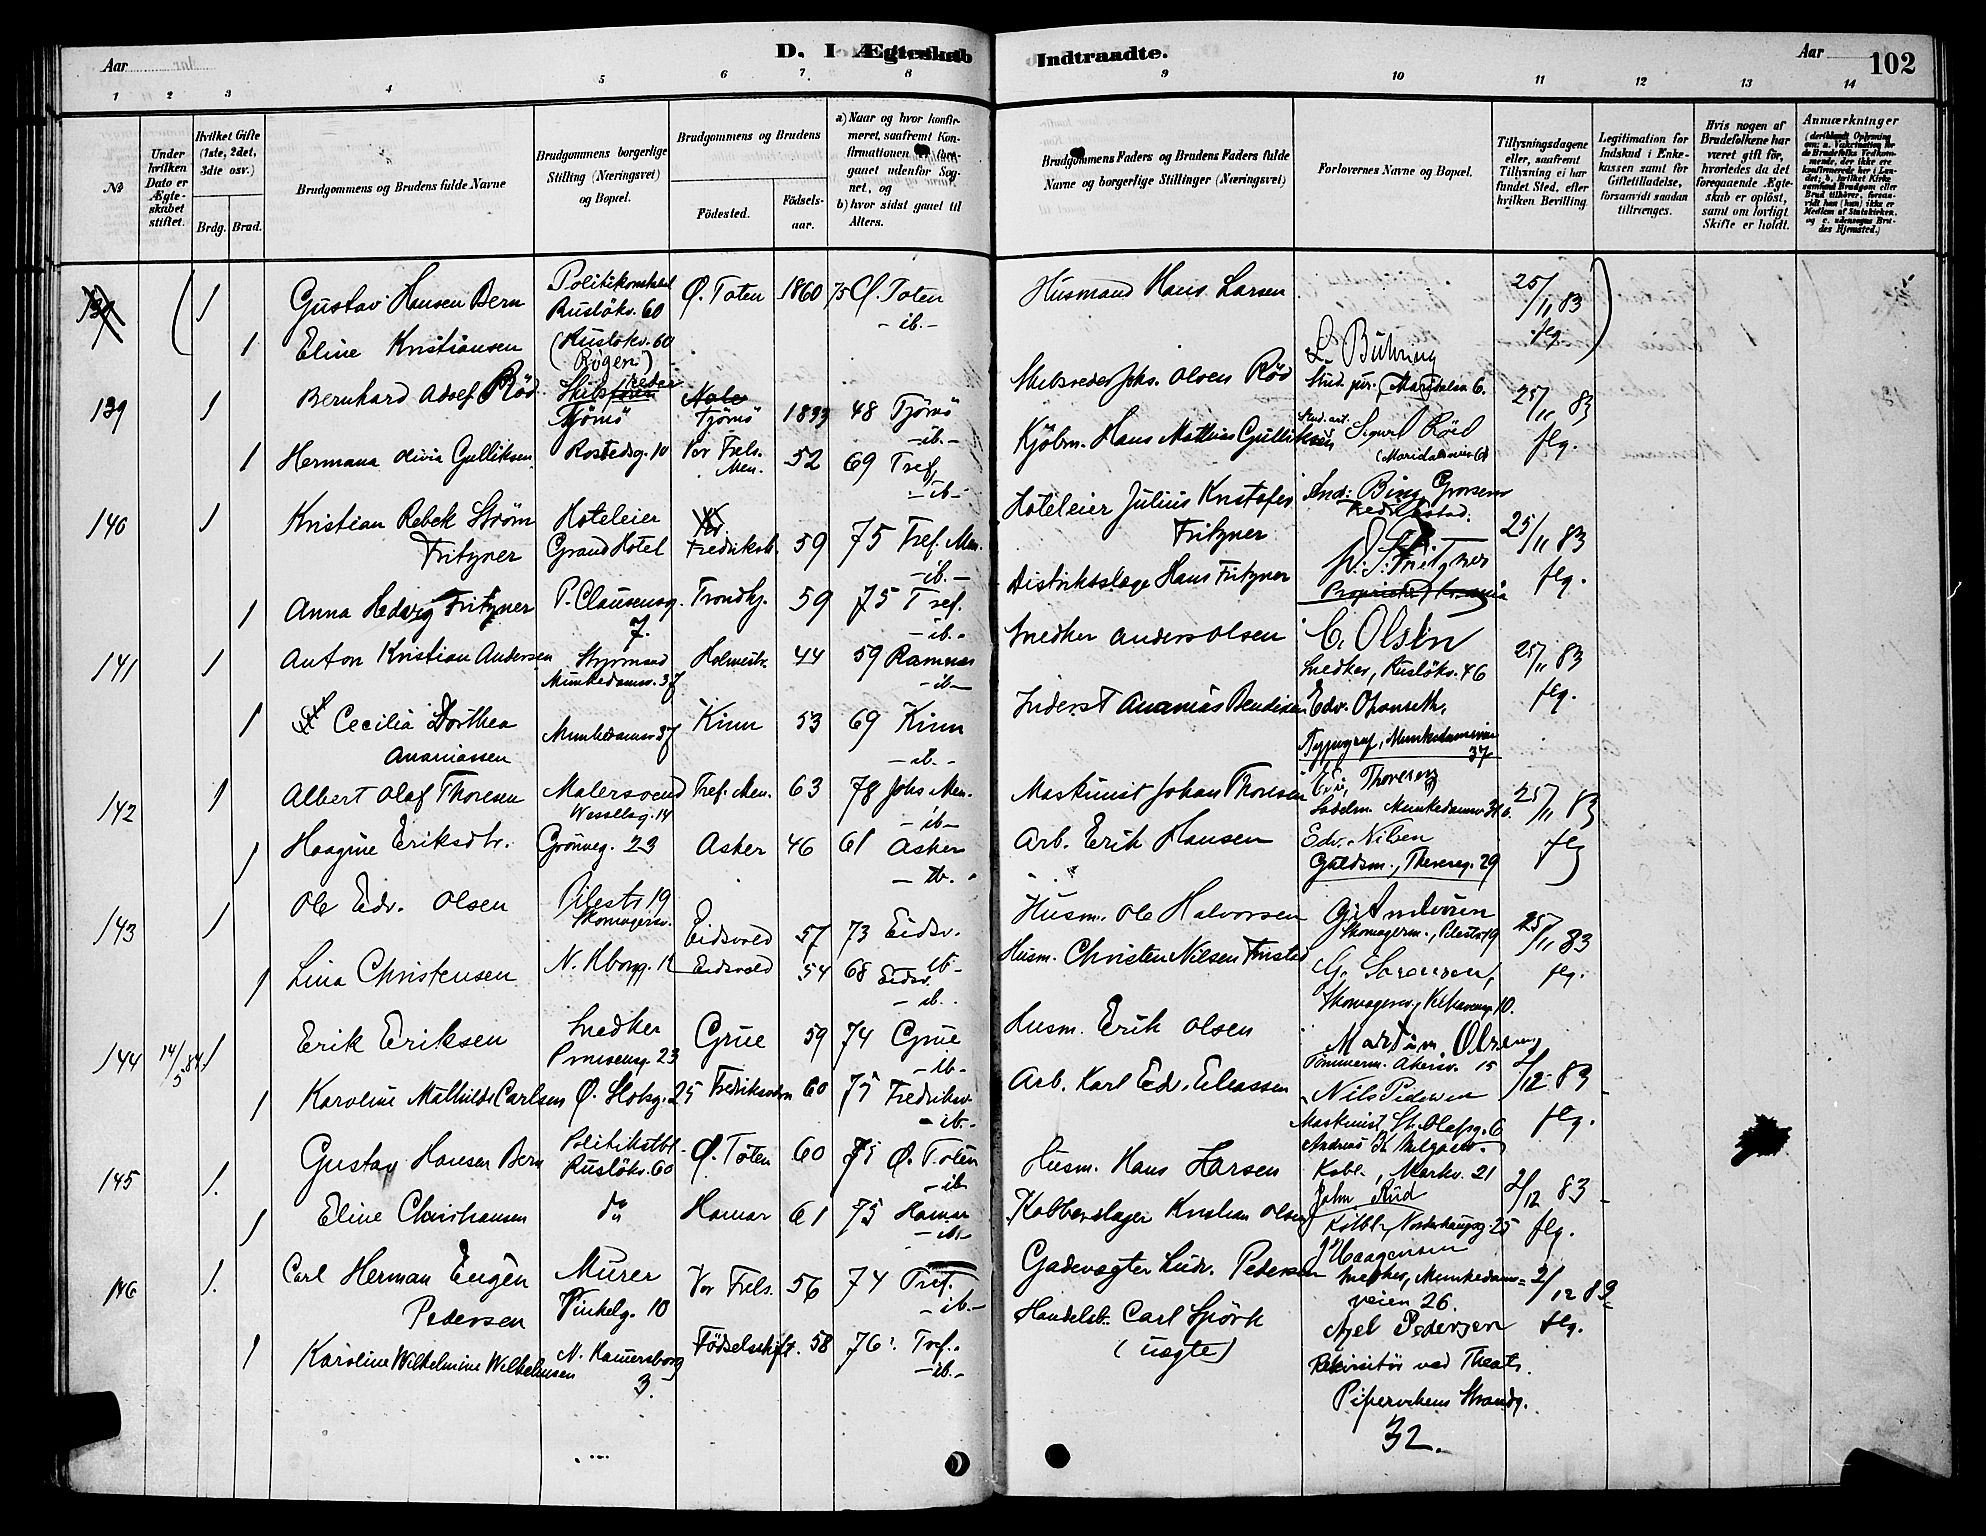 Aar
D. I Ægteskab Indtraadte.
Aar
102
1 2 3 4 5 6 7. 8 9 10 11 12 13 14
No
Under hvilken Dato er Ægteskabet stiftet.
Hvilket Gifte (1ste, 2det, 3die osv.)
Brdg. Brud.
Brudgommens og Brudens fulde Navne
Brudgommens borgerlige Stilling (Næringsvei) og Bopæl.
Brudgommens og Brudens
Fødested.
Fødselsaar.
a) Naar og hvor konfirmeret, saafremt Konfirmationen er foregaaet udenfor Sognet, og
b) hvor sidst gaaet til Alters.
Brudgommens Faders og Brudens Faders fulde Navne og borgerlige Stillinger (Næringsvei)
Forlovernes Navne og Bopæl.
Tillysningsdagene eller, saafremt Tillysning ei har fundet Sted, efter hvilken Bevilling
Legitimation for Indskud i Enkekassen samt for Giftetilladelse, forsaavidt saadan tiltrænges.
Hvis nogen af Brudefolkene har været gift før, hvorledes da det foregaaende Ægteskab er opløst, samt om lovligt Skifte er holdt.
Anmærkninger
1 Gustav Hansen Bern Politikonstabel Rusløkv. 60 Ø. Toten 1860 75 Ø. Toten -ib.- Husmand Hans Larsen 25/11 83 flg.
1 Eline Kristiansen (Rusløkv. 60
139 1 Bernhard Adolf Röd Skibsreder Tjømø Tjømø 1833 48 Tjømø -ib.- Skibsreder Johs. Olsen Röd L. Bühring Stud. jur. (Maridalsv 6. 25/11 83 flg.
1 Hermana Olivia Gulliksen Rostedsg. 10 Vor Frels. Men. 52 69 Tref. -ib- Kjøbm. Hans Mathias Gulliksen Sigurd Röd
140 1 Kristian Rebek Strøm Fritzner Hoteleier Grand Hotel Fredrikst. 59 75 Tref. Men. -ib.- Hoteleier Julius Kristofer Fritzner Fredrikstad. 25/11 83 flg.
1 Anna Hedvig Fritzner P. Clausensg. 7. Trondhj. 59 75 Tref. -ib.- Distriktslæge Hans Fritzner Fritzner
141 1 Anton Kristian Andersen Styrmand Munkedamsv. 37 Holmestr. 44 59 Ramnæs -ib- Snedker Anders Olsen C. Olsen Snedker, Rusløkv. 46 25/11 83 flg.
1 Cecilia Dorthea Ananiassen Munkedamsv 37 Kinn 53 69 Kinn -ib.- Inderst Ananias Bendixen Edv. Opanseth, Typograf, Munkedamsveien 37
142 1 Albert Olaf Thoresen Malersvend Wesselsg. 14 Tref. Men. 63 78 Johs Men. -ib- Maskinist Johan Thoresen Thoresen Sadelm. Munkedamsv. 25/11 83 flg
1 Haagine Eriksdtr. Grönneg. 23 Asker 46 61 Asker -ib.- Arb. Erik Hansen Edv. Nilsen Guldsm., Thereseg. 29
143 1 Ole Edv. Olsen Pilestr 19 Skomagersv. Eidsvold 57 73 Eidsv. -ib- Husm. Ole Halvorsen Skomagerm., Pilestr 19 25/11 83 flg.
1 Lina Christensen Eidsvold 54 68 Eidsv. -ib. Husm. Christen Nilsen Finstad G. Sørensen,
144 14/5 84 1 Erik Eriksen Snedker Prinsensg. 23 Grue 59 74 Grue -ib- Husm. Erik Olsen Martin Olsen, Tømmerm. Akersv. 15 2/12 83 flg.
1 Karoline Mathilde Carlsen Ø. Slotsg. 25 Fredriksværn 60 75 Fredriksv. -ib.- Arb. Karl Edv. Eliassen Nils Pedersen Maskinist St. Olafsg. 6
145 1. Gustav Hansen Bern Politikstbl. Rusløkv. 60 Ø. Toten 60 75 Ø. Toten -ib Husm. Hans Larsen Andreas K. Kobl., Markv. 21 2/12 83 - flg.
1 Eline Christiansen do Hamar 61 75 Hamar -ib- Kobberslager Kristian Olsen John Rud
146 1. Carl Herman Eugen Pedersen Murer Vinkelg. 10 Vor Frels. 56 74 Tref. -ib- Gadevægter Ludv. Pedersen J Haagensen Snedker, Munkedamsveien 26. 2/12 83 flg.
1 Karoline Wilhelmine Wilhelmsen N. Hammersborg 3. Fødselsstift. 58 76 Tref. -ib.- Handelsb. Carl Spörk (uægte) Axel Pedersen Rekvisitør ved Theatr. Pipervikens Strandg. 32.